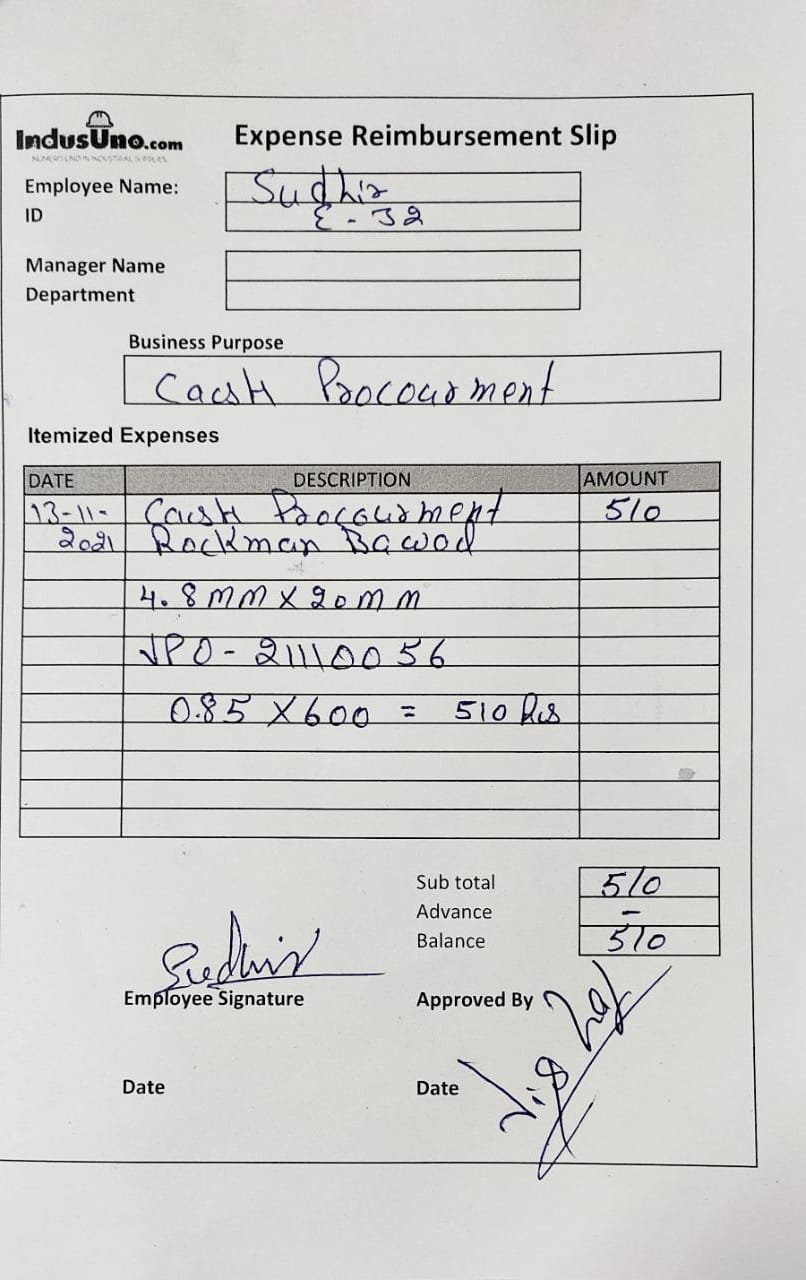 IndusUno.com
NUMERO UNO IN INDUSTRIAL SUPPLIES
Expense Reimbursement Slip
Employee Name: Sudhir
ID E-32
Manager Name
Department
Business Purpose
Cacsh Procourment
Itemized Expenses
DATE DESCRIPTION AMOUNT
13-11- Cash Procourment 510
2021 Rockman Bawod
4.8 MM X 20 MM
JPO-21110056
0.85 X 600 = 510 Rs
Sub total 510
Advance -
Balance 510
Sudhir
Employee Signature Approved By
Date Date